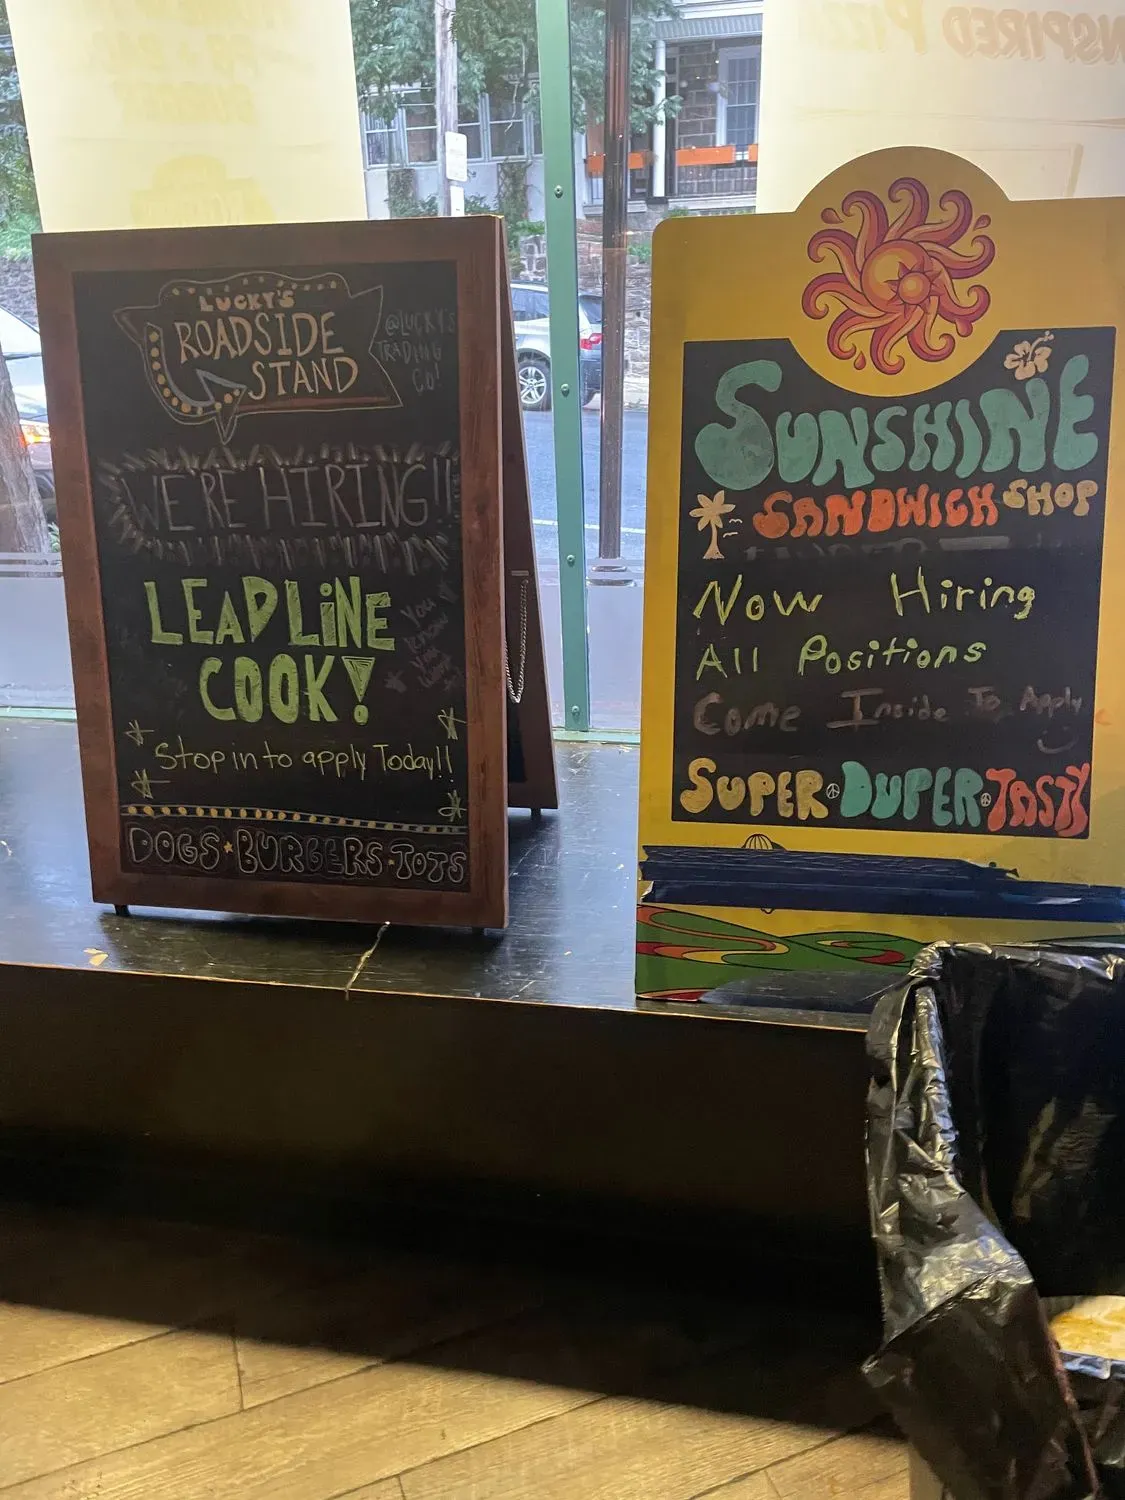 LUCKY'S
ROADSIDE
STAND
@LUCKYS
TRADING
CO!
WE'RE HIRING!!
LEAD LiNE
COOK!
You
Know
You
Stop in to apply Today!!
DOGS BURGERS TOTS
NSPIRED PIZZ
SUNSHINE
SANDWICH SHOP
Now Hiring
All Positions
Come Inside To Apply
SUPER DUPER TASTY